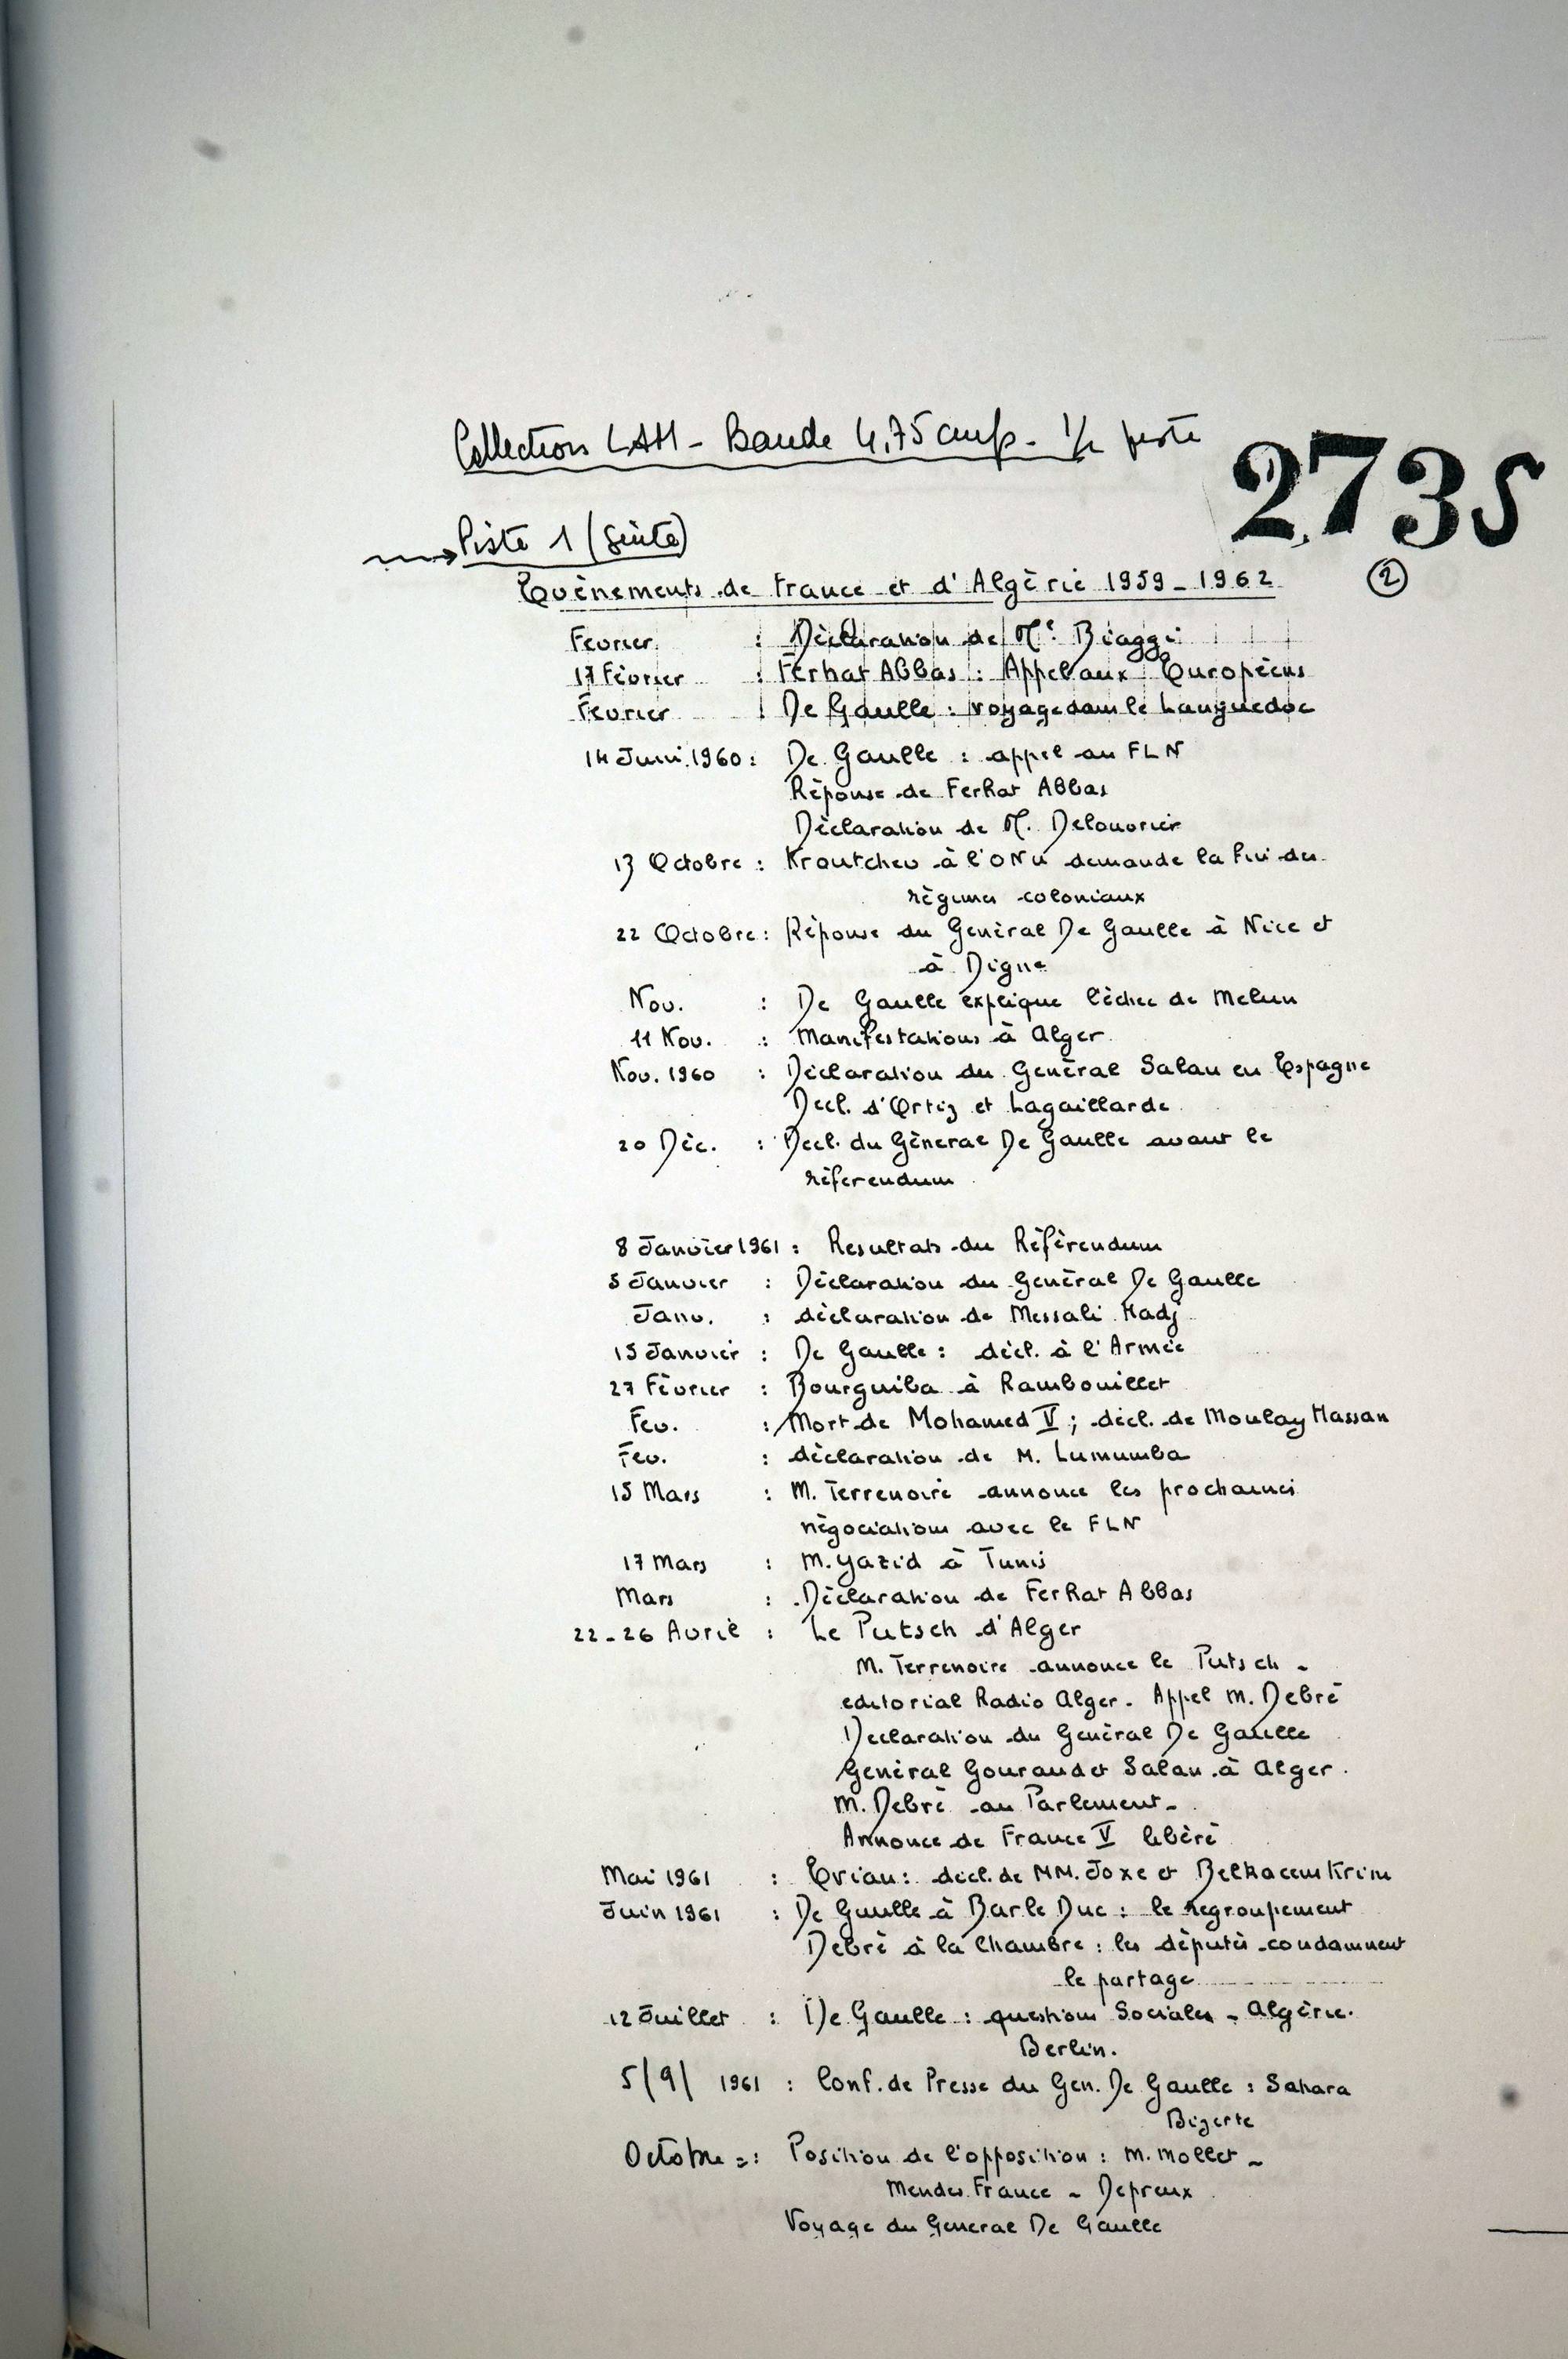 Collection LAM - Bande 4,75 cm/s - 1/2 piste
2735
→ Piste 1 (Suite)
②
Evènements de France et d'Algèrie 1959 - 1962
Fevrier : Dèclaration de Me Biaggi
17 Fèvrier : Ferhat Abbas : Appel aux Européens
Fevrier : De Gaulle : voyage dans le Languedoc
14 Juin 1960 : De Gaulle : appel au FLN
Rèponse de Ferhat Abbas
Dèclaration de M. Delouvrier
13 Octobre : Kroutchev à l'ONU demande la fin des
règimes coloniaux
22 Octobre : Rèponse du Genèral De Gaulle à Nice et
à Digne
Nov. : De Gaulle explique l'èchec de Melun
11 Nov. : Manifestations à Alger
Nov. 1960 : Dèclaration du Genèral Salan en Espagne
Decl. d'Ortiz et Lagaillarde
20 Dèc. : Decl. du Gèneral De Gaulle avant le
rèferendum
8 Janvier 1961 : Resultats du Rèfèrendum
5 Janvier : Dèclaration du Genèral De Gaulle
Janv. : dèclaration de Messali Hadj
15 Janvier : De Gaulle : dècl. à l'Armèe
27 Fèvrier : Bourguiba à Rambouillet
Fev. : Mort de Mohamed V ; dècl. de Moulay Hassan
Fev. : dèclaration de M. Lumumba
15 Mars : M. Terrenoire annonce les prochaines
nègociations avec le FLN
17 Mars : M. Yazid à Tunis
Mars : Dèclaration de Ferhat Abbas
22 - 26 Avril : Le Putsch d'Alger
M. Terrenoire annonce le Putsch -
editorial Radio Alger - Appel M. Debrè
Declaration du Genèral De Gaulle
Genèral Gouraud et Salan à Alger.
M. Debrè au Parlement -
Annonce de France V libèrè
Mai 1961 : Evian : dècl. de MM. Joxe et Belkacem Krim
Juin 1961 : De Gaulle à Bar le Duc : le regroupement
Debrè à la Chambre : les dèputès condamnent
le partage
12 Juillet : De Gaulle : questions Sociales - Algèrie.
Berlin.
5/9/ 1961 : Conf. de Presse du Gen. De Gaulle : Sahara
Bizerte
Octobre = : Position de l'opposition : M. Mollet -
Mendes France - Depreux
Voyage du General De Gaulle